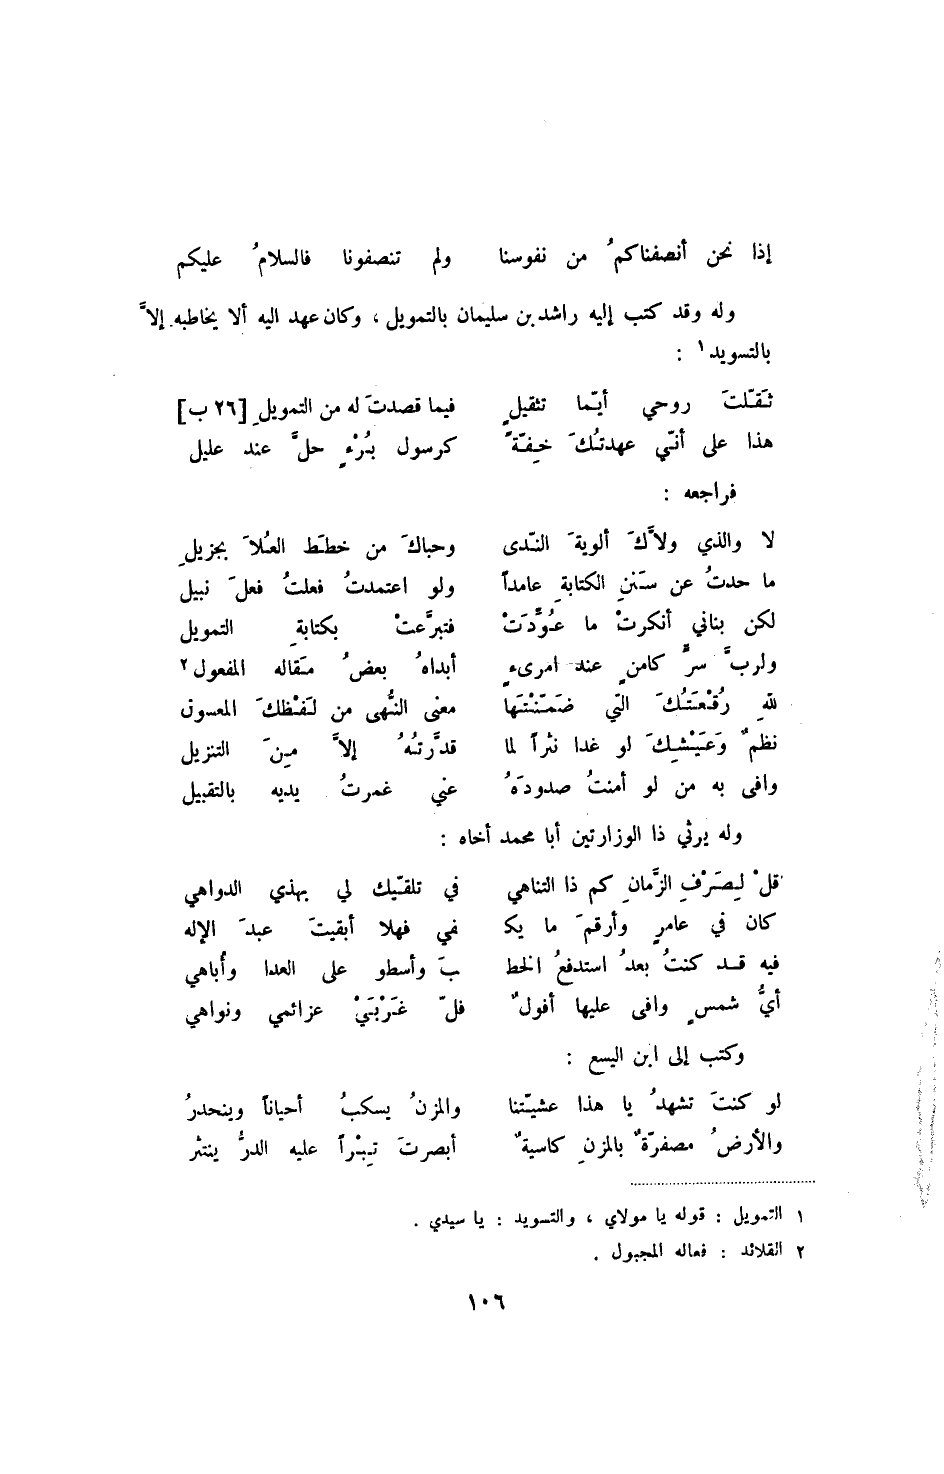 إذا نحن أنصفناكمُ من نفوسنا ولم تنصفونا فالسلامُ عليكم
وله وقد كتب إليه راشد بن سليمان بالتمويل ، وكان عهد اليه ألا يخاطبه إلاَّ
بالتسويد١ :
ثَقّلتَ روحي أيّما تثقيلٍ فيما قصدتَ له من التمويلِ [٢٦ ب]
هذا على أنّي عهدتُكَ خِفّةً كرسول بُرْءٍ حلَّ عند عليل
فراجعه :
لا والذي ولاَّكَ ألويةَ النّدى وحباكَ من خططَ العُلاَ بجزيلِ
ما حدتُ عن سَنَنِ الكتابةِ عامداً ولو اعتمدتُ فعلتُ فعلَ نبيل
لكن بناني أنكرتْ ما عُوِّدَتْ فتبرَّعتْ بكتابةِ التمويل
ولربَّ سرٍّ كامنٍ عند امرىءٍ أبداهُ بعضُ مَقاله المفعول٢
للهِ رُقْعَتُكَ الّتي ضَمّنْتَها معنى النُّهى من لَفْظكَ المعسول
نظمٌ وَعَيْشِكَ لو غدا نثراً لما قدَّرتُهُ إلاَّ مِنَ التنزيل
وافى به من لو أمنتُ صدودَهُ عني غمرتُ يديه بالتقبيل
وله يرثي ذا الوزارتين أبا محمد أخاه :
قلْ لِصَرْفِ الزَّمانِ كم ذا التناهي في تلقّيك لي بهذي الدواهي
كان في عامرٍ وأرقمَ ما يك في فهلا أبقيتَ عبدَ الإله
فيه قد كنتُ بعدُ استدفعُ الخط بَ وأسطو على العدا وأُباهي
أيُّ شمسٍ وافى عليها أفولٌ فلّ غَرْبَيْ عزائمي ونواهي
وكتب إلى ابن اليسع :
لو كنتَ تشهدُ يا هذا عشيّتنا والمزنُ يسكبُ أحياناً وينحدرُ
والأرضُ مصفرّةٌ بالمزنِ كاسيةٌ أبصرتَ تِبْراً عليه الدرُّ ينتثر
١ التمويل : قوله يا مولاي ، والتسويد : يا سيدي .
٢ القلائد : فعاله المجبول .
١٠٦